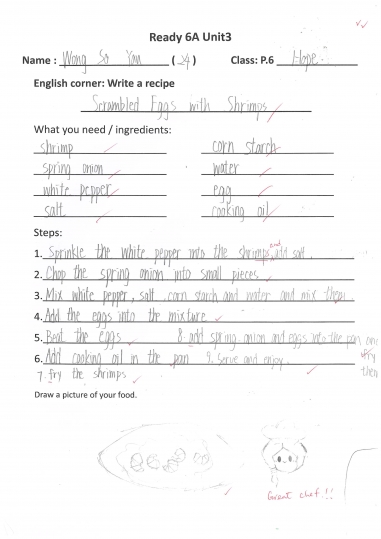 Ready 6A Unit3
Name : Wong So Yan (24) Class: P.6 Hope
English corner: Write a recipe
Scrambled Eggs with Shrimps
What you need / ingredients:
shrimp corn starch
spring onion water
white pepper egg
salt cooking oil
Steps:
1. Sprinkle the white pepper into the shrimps and add salt.
2. Chop the spring onion into small pieces
3. Mix white pepper, salt, corn starch and water and mix them
4. Add the eggs into the mixture
5. Beat the eggs 8. add spring onion and eggs into the pan and fry them
6. Add cooking oil in the pan 9. Serve and enjoy.
7. fry the shrimps
Draw a picture of your food.
Great chef!!